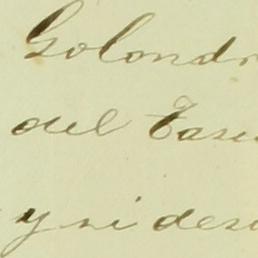 Golondr
del Tas
y si des